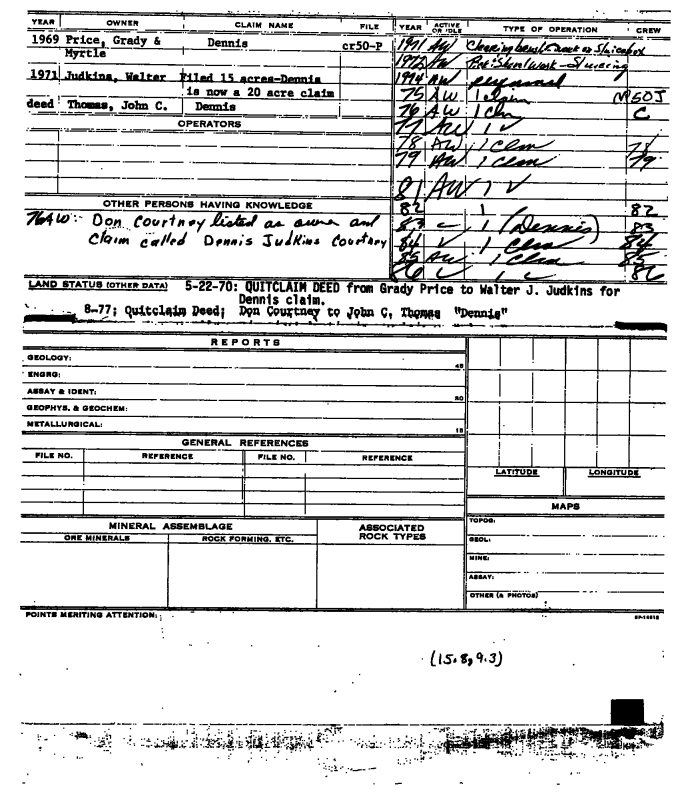 YEAR OWNER CLAIM NAME FILE YEAR ACTIVE OR IDLE TYPE OF OPERATION CREW
1969 Price, Grady & Dennis cr50-P 1971 AW
Myrtle 1972
1971 Judkins, Walter Filed 15 acres-Dennis 1974 AW
is now a 20 acre claim 75 AW
deed Thomas, John C. Dennis 76 AW 1 Clm
OPERATORS 77 AW 1 ✓
78 AW 1 Clm 78
79 AW 1 Clm 79
81 AW 1 ✓
OTHER PERSONS HAVING KNOWLEDGE 82 1 82
76AW: Don Courtney listed as owner and 83 1 (Dennis) 83
Claim called Dennis Judkins Courtney 84 ✓ 1 Clm 84
85 AW 1 Clm 85
86 ✓ 1 86
LAND STATUS (OTHER DATA) 5-22-70: QUITCLAIM DEED from Grady Price to Walter J. Judkins for
Dennis claim.
8-77; Quitclaim Deed; Don Courtney to John C. Thomas "Dennis"
REPORTS
GEOLOGY:
ENGRG:
ASSAY & IDENT:
GEOPHYS. & GEOCHEM:
METALLURGICAL:
GENERAL REFERENCES
FILE NO. REFERENCE FILE NO. REFERENCE
LATITUDE LONGITUDE
MAPS
MINERAL ASSEMBLAGE ASSOCIATED ROCK TYPES TOPOG:
ORE MINERALS ROCK FORMING, ETC. GEOL:
MINE:
ASSAY:
OTHER (& PHOTOS)
POINTS MERITING ATTENTION:
(15.8,9.3)